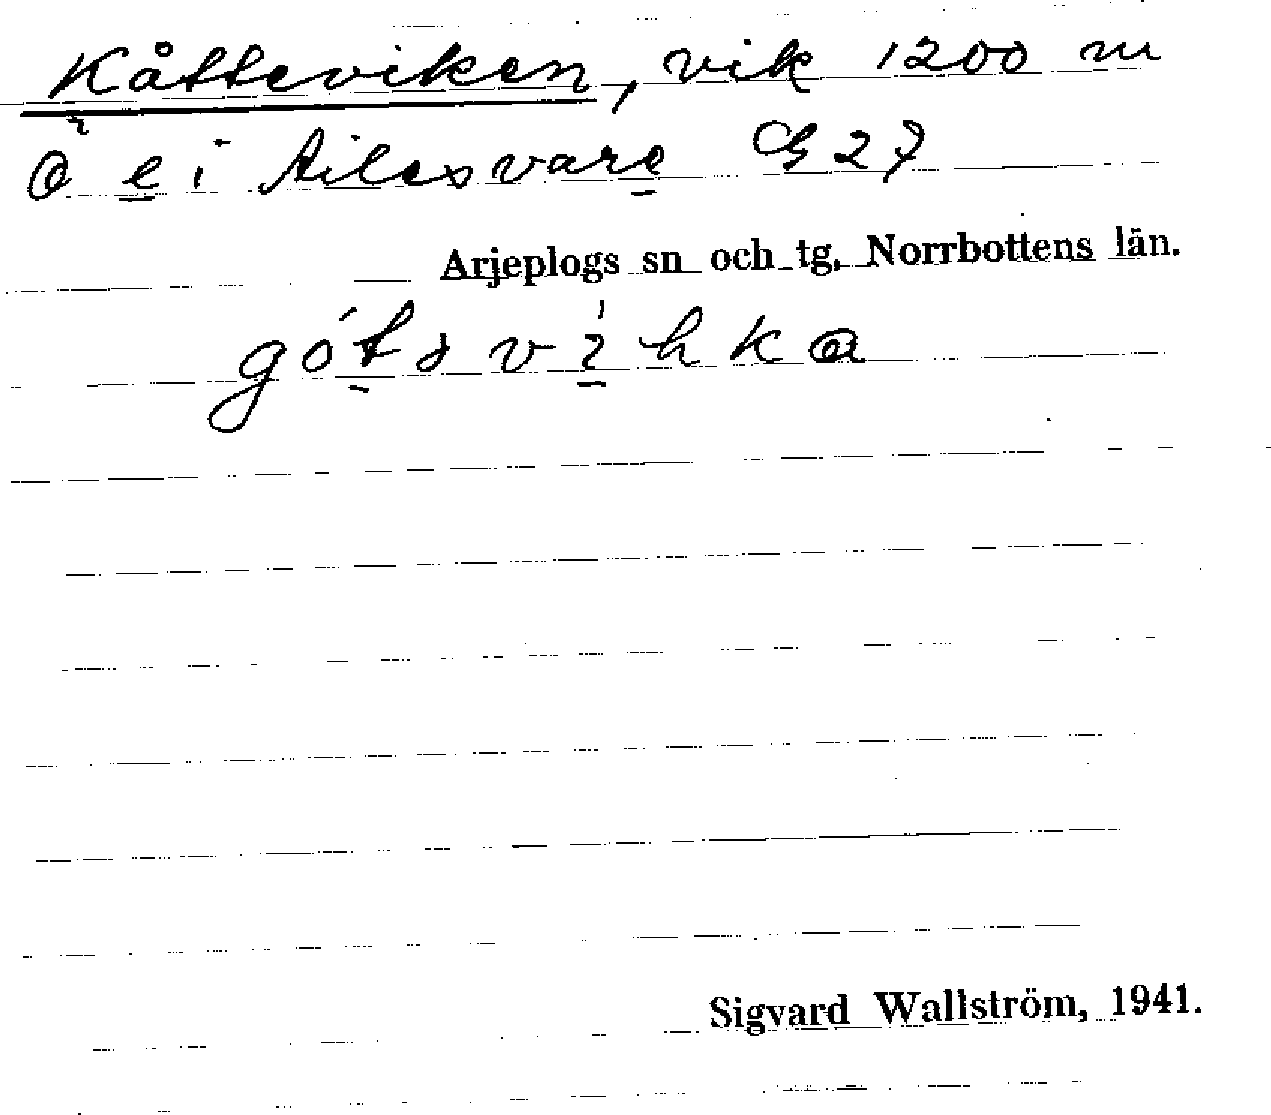 Kåtteviken, vik 1200 m
Ö e i Ailesvare G 27
Arjeplogs sn och tg, Norrbottens län.
Sigvard Wallström, 1941.